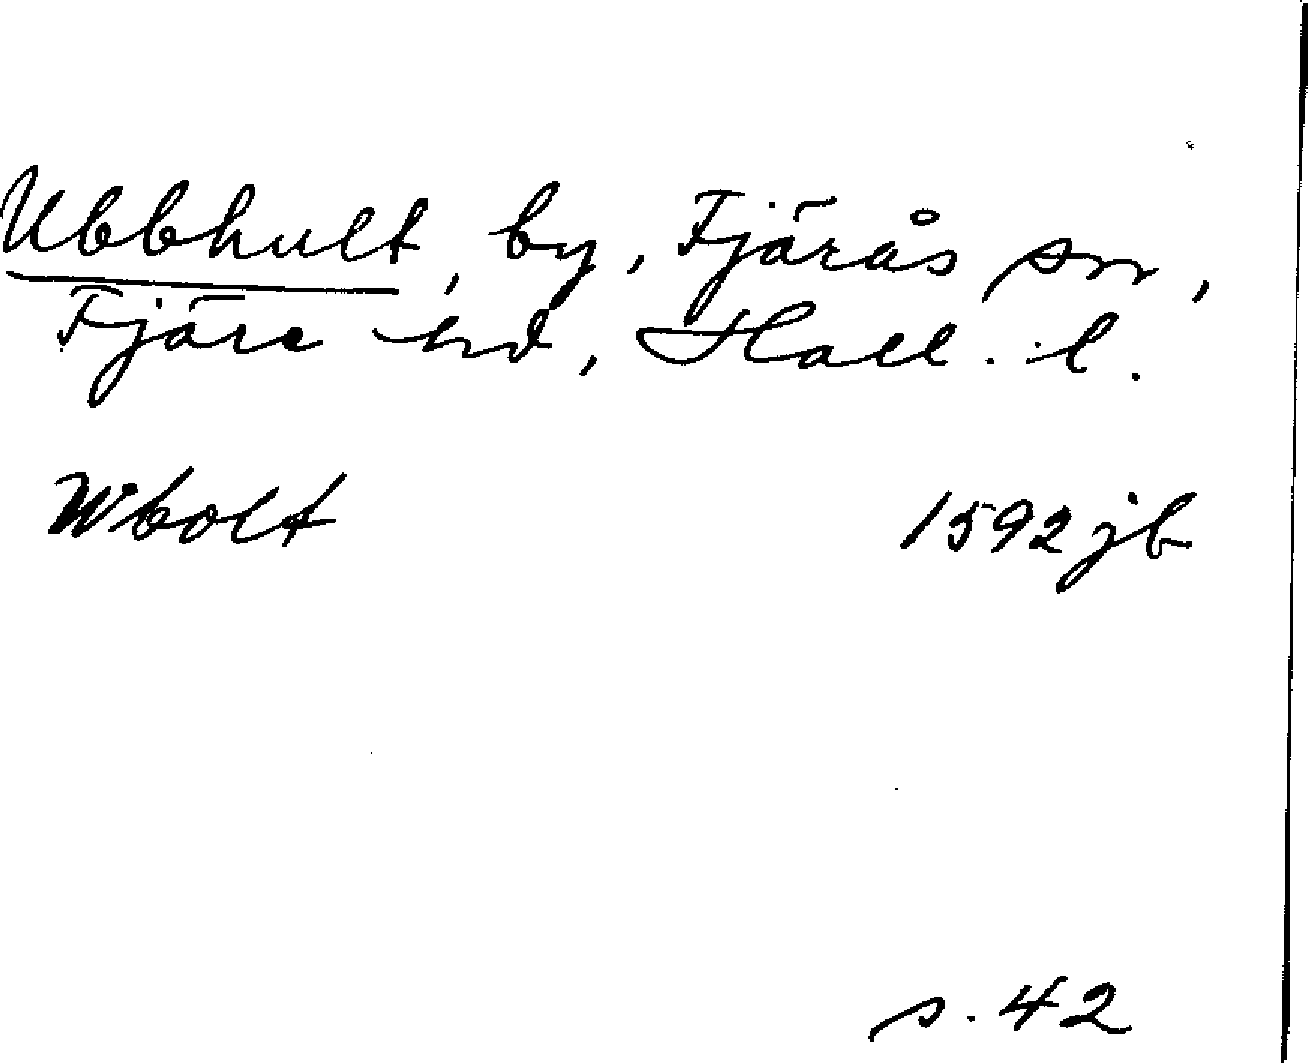 Ubbhult, by, Fjärås sn,
Fjäre hd, Hall. l.
Wbolt 1592 jb
s. 42